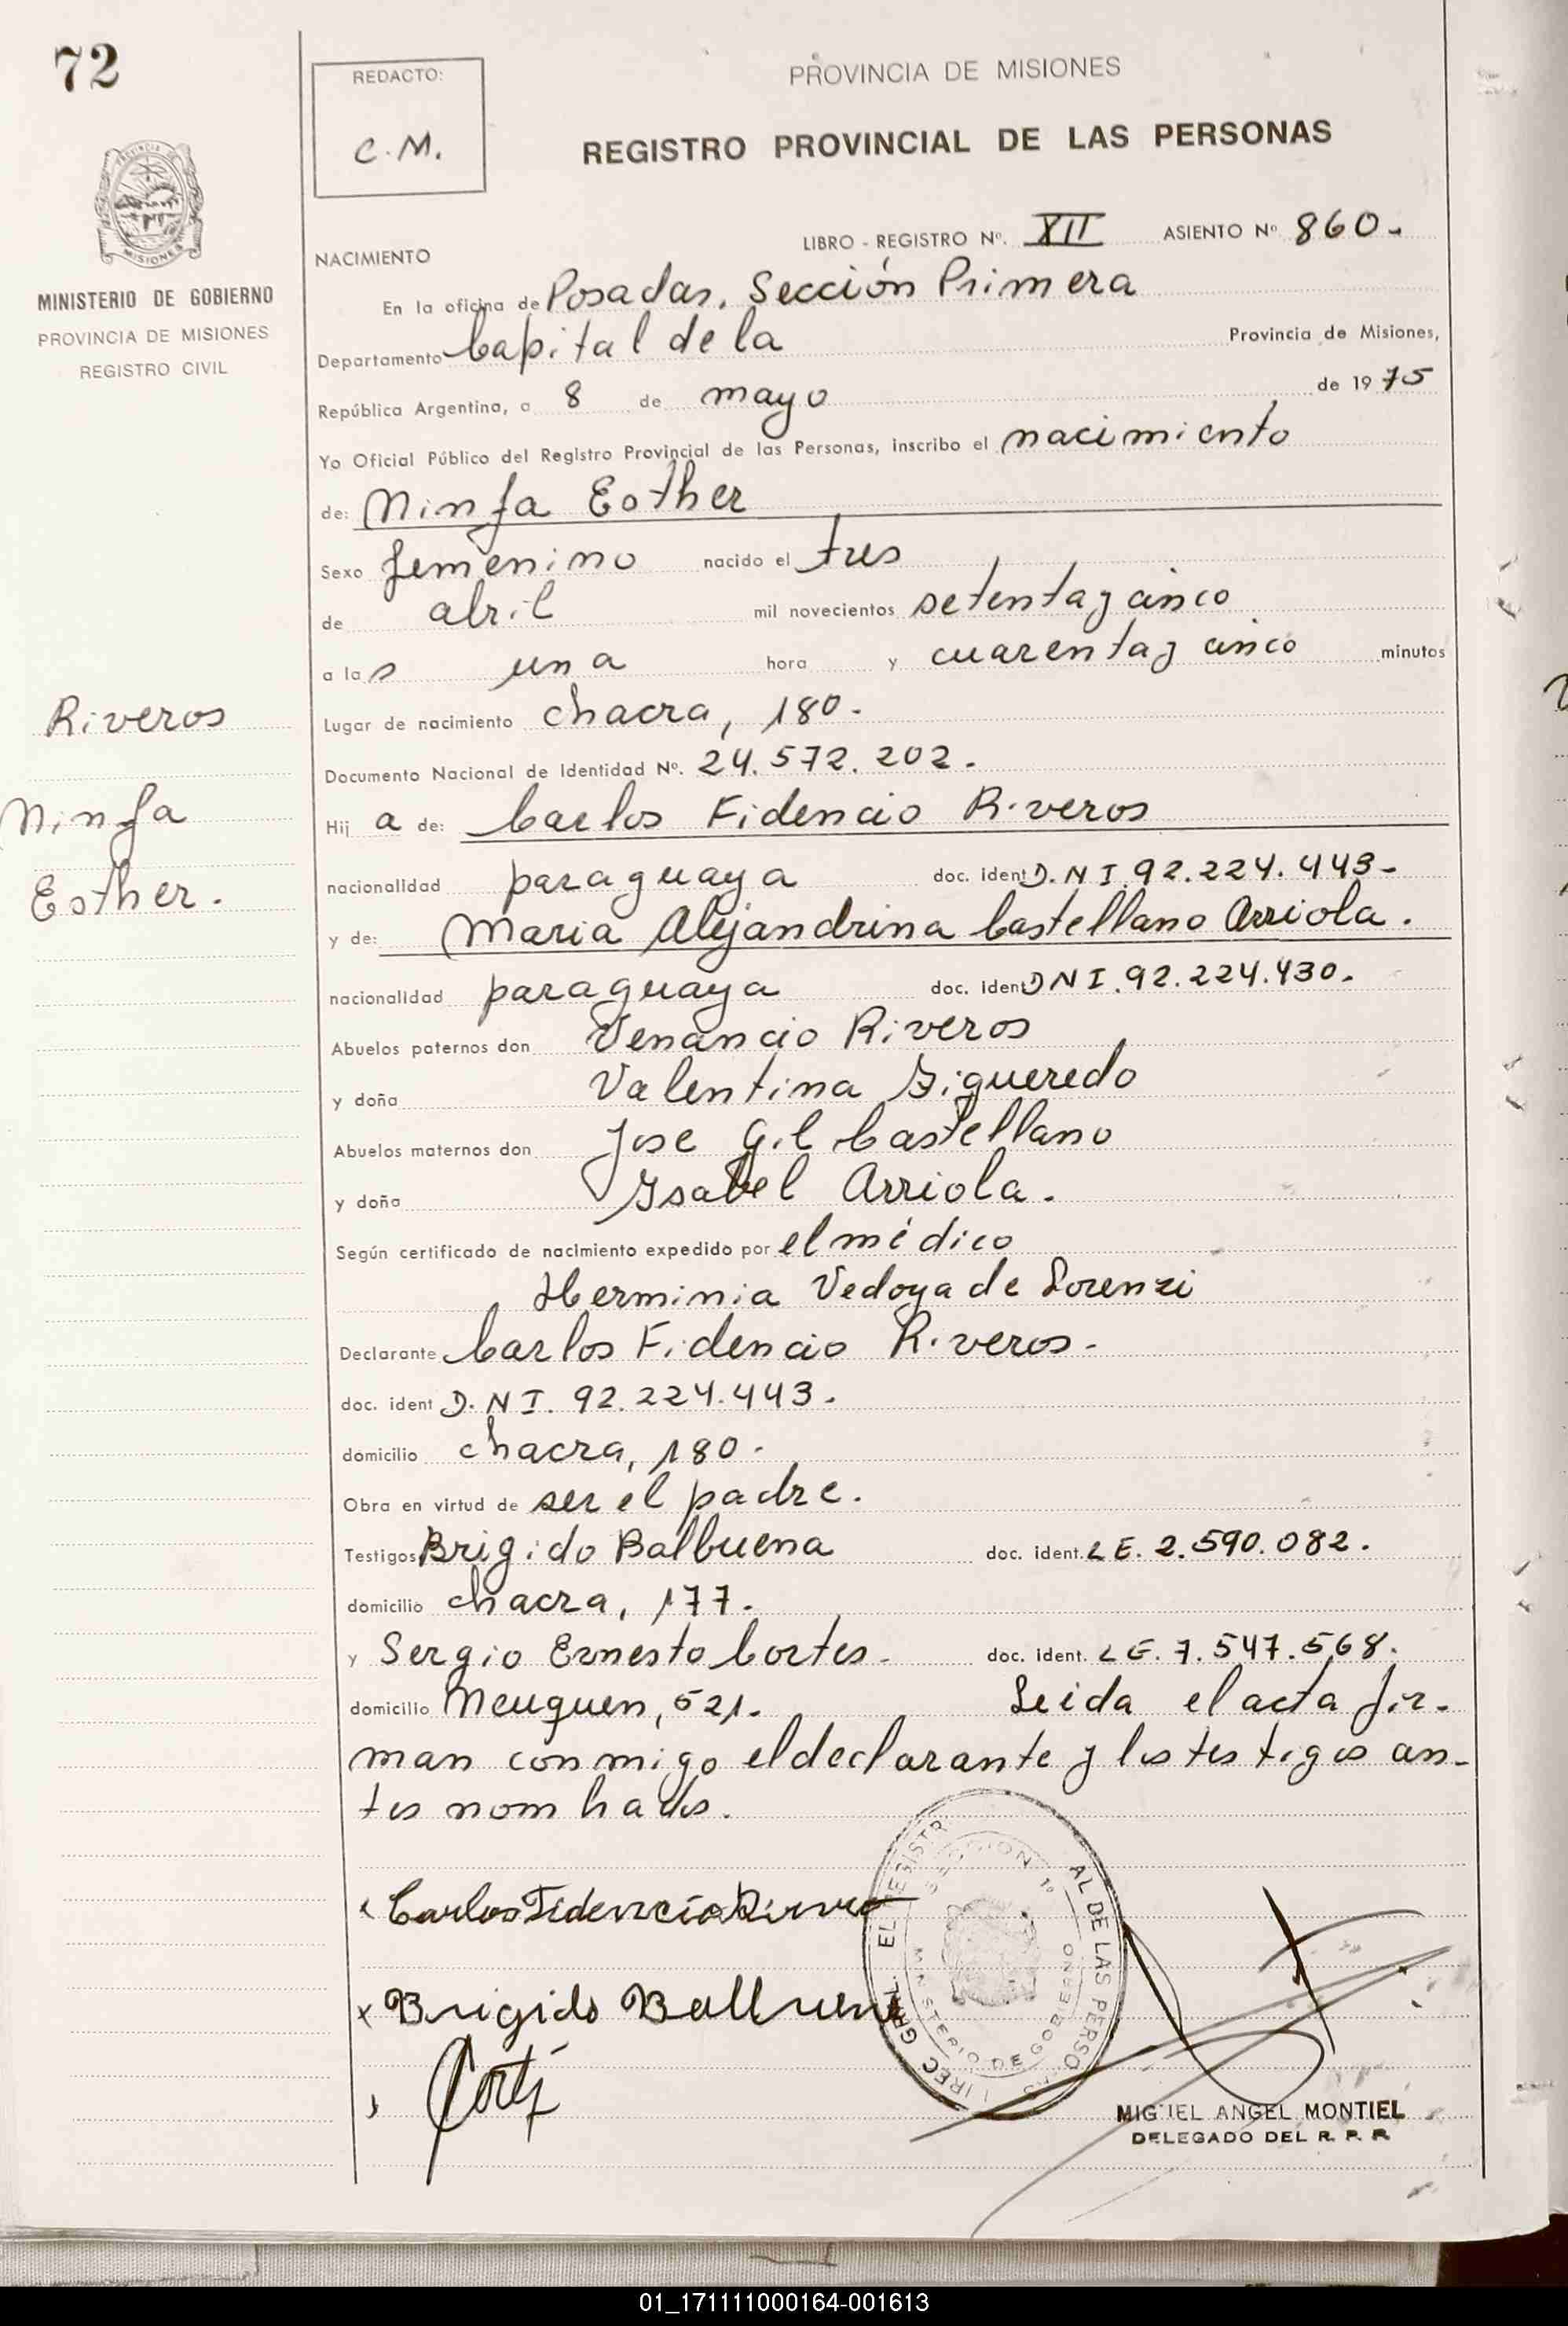 72
REDACTO:
C.M.
PROVINCIA DE MISIONES
REGISTRO PROVINCIAL DE LAS PERSONAS
PROVINCIA DE
MISIONES
MINISTERIO DE GOBIERNO
PROVINCIA DE MISIONES
REGISTRO CIVIL
LIBRO - REGISTRO Nº. XII ASIENTO Nº 860.
NACIMIENTO
En la oficina de Posadas, Sección Primera
Departamento Capital de la Provincia de Misiones,
República Argentina, a 8 de mayo de 1975
Yo Oficial Público del Registro Provincial de las Personas, inscribo el nacimiento
de: Ninfa Esther
Sexo femenino nacido el tres
de abril mil novecientos setenta y cinco
a las una hora y cuarenta y cinco minutos
Riveros
Ninfa
Esther.
Lugar de nacimiento chacra, 180.
Documento Nacional de Identidad Nº. 24.572.202.
Hija de: Carlos Fidencio Riveros
nacionalidad paraguaya doc. ident D.N I. 92.224.443-
y de: Maria Alejandrina Castellano Arriola.
nacionalidad paraguaya doc. iden DNI. 92.224.430.
Abuelos paternos don Venancio Riveros
y doña Valentina Figueredo
Abuelos maternos don Jose Gil Castellano
y doña Ysabel Arriola.
Según certificado de nacimiento expedido por el médico
Herminia Vedoya de Lorenzi
Declarante Carlos Fidencio Riveros.
doc. ident D.N I. 92.224.443.
domicilio chacra, 180.
Obra en virtud de ser el padre.
Testigos Brigido Balbuena doc. ident. LE. 2.590.082.
domicilio chacra, 177.
y Sergio Ernesto Cortes. doc. ident. LE. 7.547.568.
domicilio Neuquen, 521. Leida el acta fir-
man conmigo el declarante y los testigos an-
tes nombrados.
Carlos Fidencio Riveros
Brigido Balbuena
Cortes
EL REGISTR AL DE LAS PERSO
SECCION 1º
MINISTERIO DE GOBIERNO
MIGUEL ANGEL MONTIEL
DELEGADO DEL R. P. P.
01_171111000164-001613